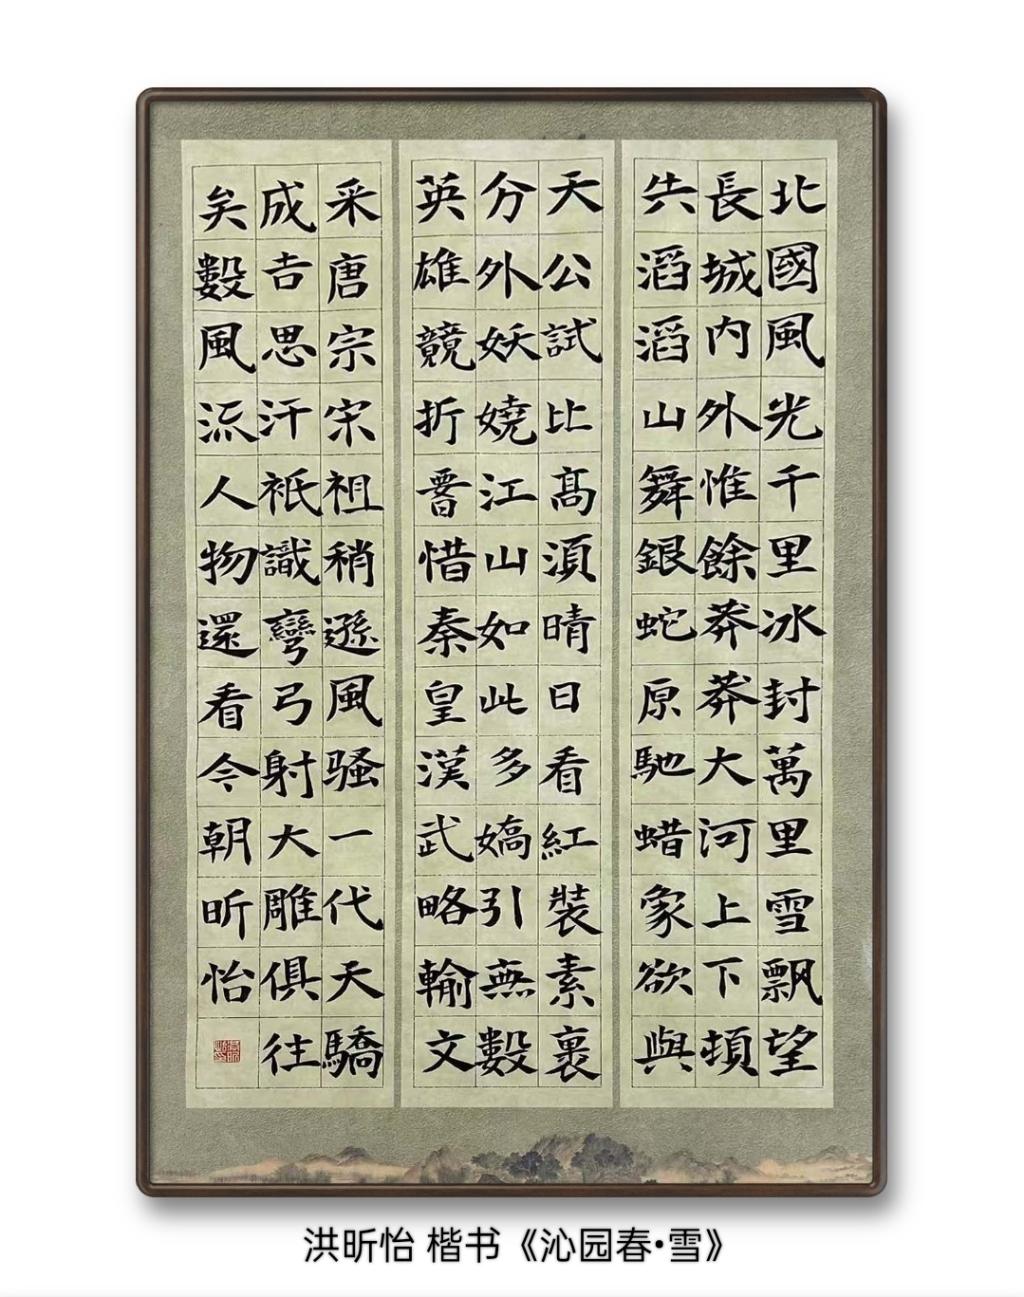 北國風光千里冰封萬里雪飄望
長城内外惟餘莽莽大河上下頓
失滔滔山舞銀蛇原馳蜡象欲與
天公試比髙須晴日看紅裝素裹
分外妖嬈江山如此多嬌引無數
英雄競折腰惜秦皇漢武略輸文
采唐宗宋祖稍遜風騷一代天驕
成吉思汗衹識彎弓射大雕俱往
矣數風流人物還看今朝昕怡
洪昕怡 楷书《沁园春•雪》